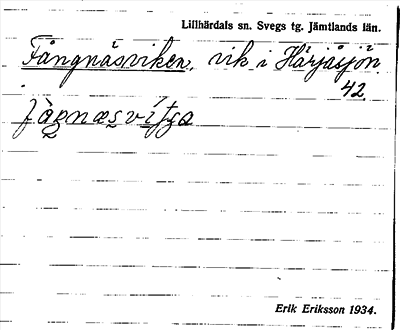 Lillhärdals sn. Svegs tg. Jämtlands län.
Fångnäsviken, vik i Härjåsjön
42.
Erik Eriksson 1934.